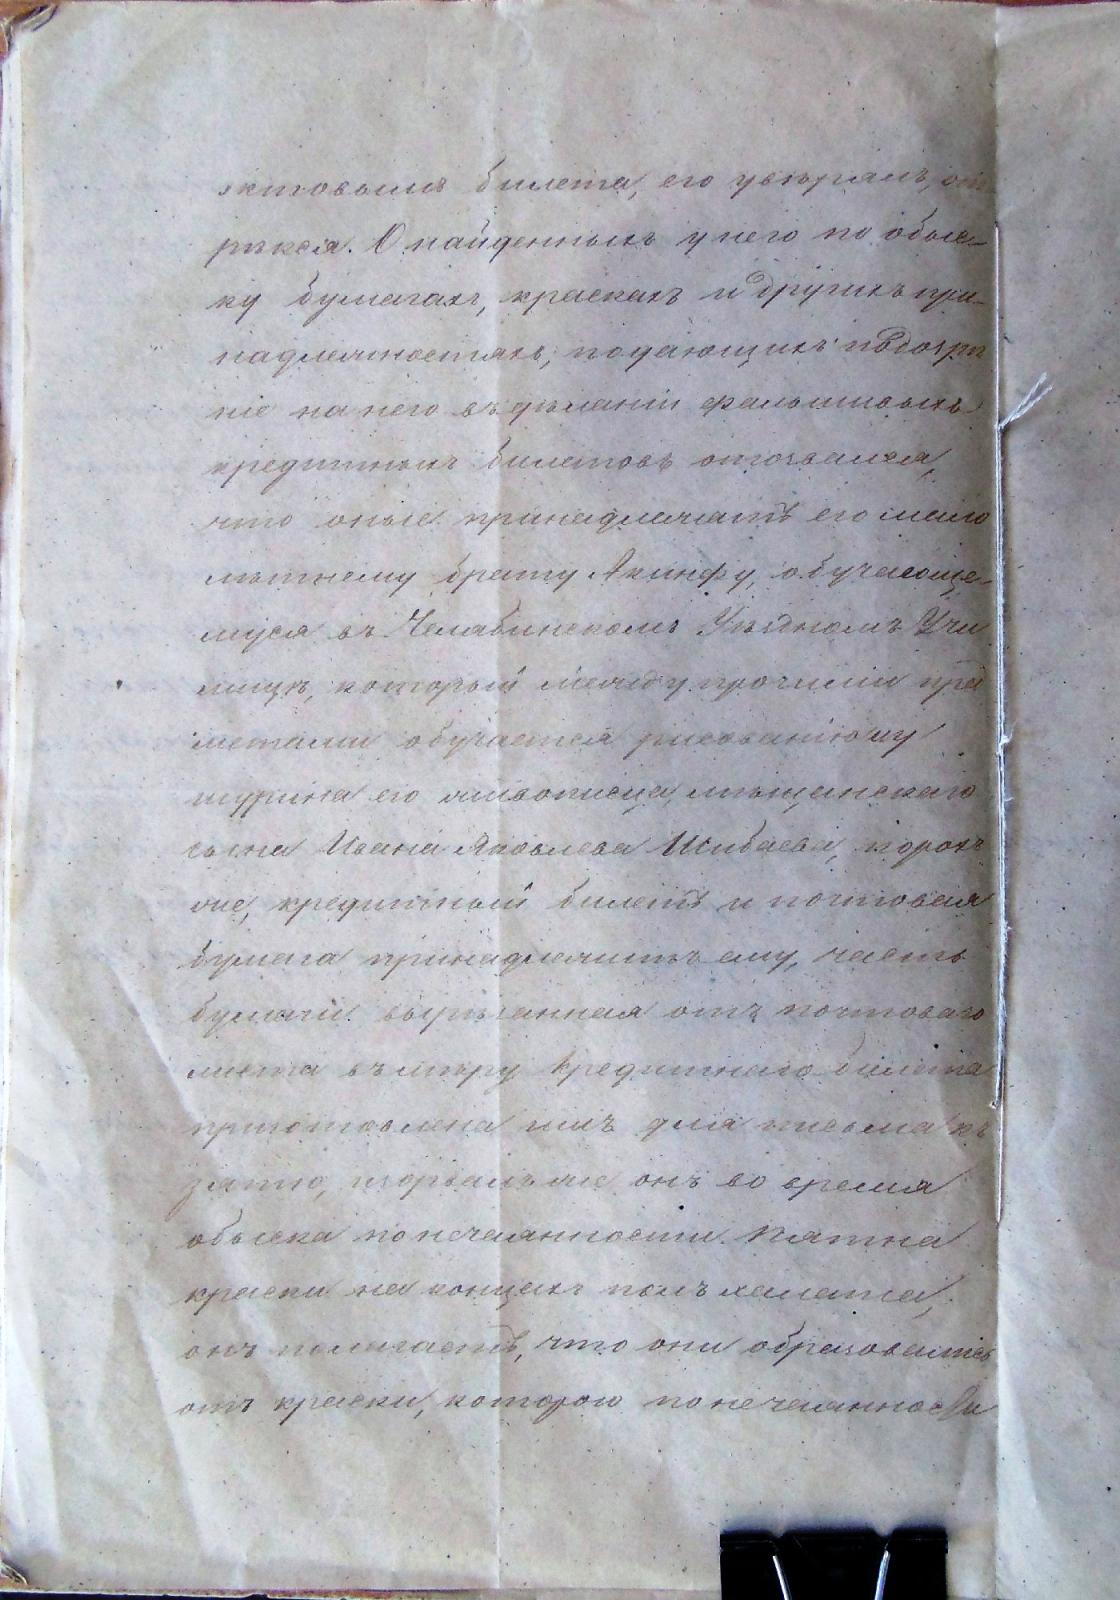 билета, его увѣрялъ, от
рѣкся. О найденныхъ у него по обыс-
ку бумагахъ, краскахъ и другихъ при-
надлежностяхъ, подающихъ подозрѣ
ніе на него въ дѣланіи фальшивыхъ
кредитныхъ билетовъ отозвался,
что оные принадлежатъ его мало
лѣтнему брату Акинфу, обучающе-
муся въ Челябинскомъ Уѣздномъ Учи
лищѣ, который между прочими пред
метами обучается рисованію и у
шурина его живописца, мѣщанскаго
сына Ивана Яковлева Шибаева,
же, кредитный билетъ и почтовая
бумага принадлежитъ ему, часть
бумаги вырѣзанная отъ почтоваго
листа въ мѣру кредитнаго билета
приготовлена имъ для письма къ
зятю, изорвалъ же онъ во время
обыска по нечаянности. Пятна
краски на концахъ полъ халата,
онъ полагаетъ, что они образовались
отъ краски, которою по нечаянности